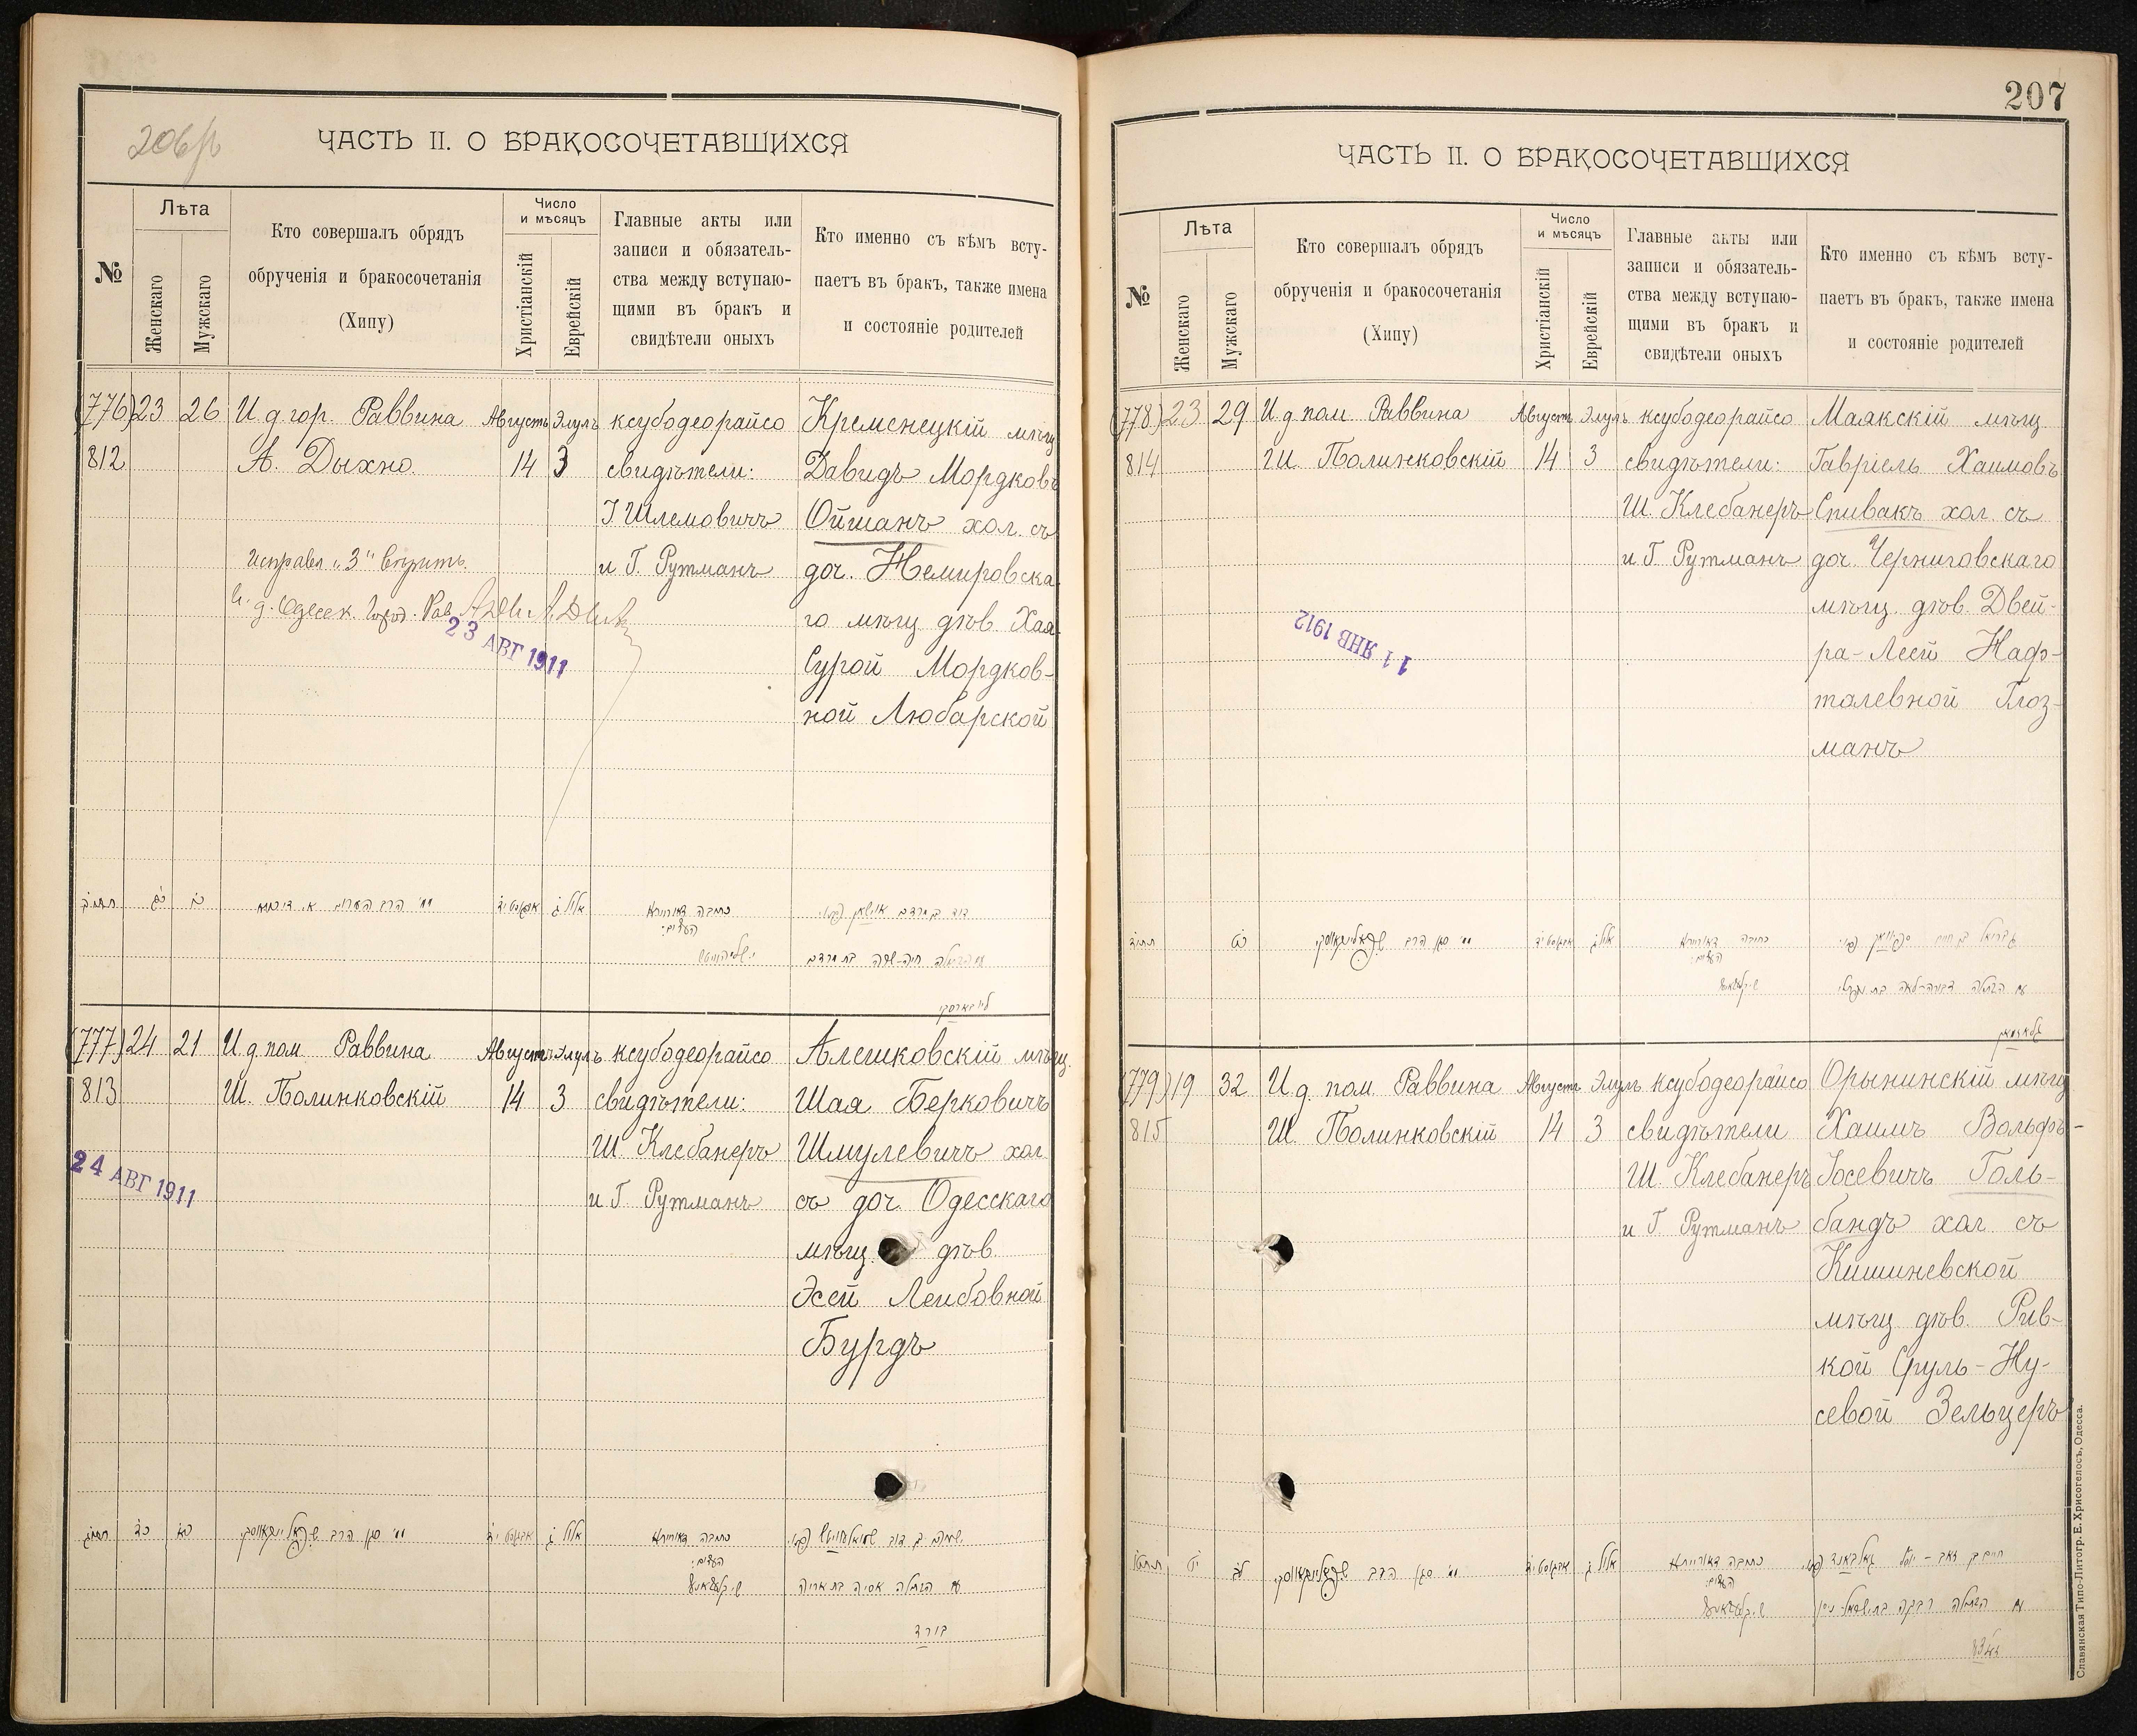 206 об
ЧАСТЬ II. О БРАКОСОЧЕТАВШИХСЯ
№
Лѣта
Женскаго
Мужскаго
Кто совершалъ обрядъ
обрученія и бракосочетанія
(Хипу)
Число
и мѣсяцъ
Христіанскій
Еврейскій
Главные акты или
записи и обязатель-
ства между вступаю-
щими въ бракъ и
свидѣтели оныхъ
Кто именно съ кѣмъ всту-
паетъ въ бракъ, также имена
и состояніе родителей
(776)
812
23
26
И. д гор. Раввина
А. Дыхно.
Исправл „3" вѣрить.
И. д. Одесск. Город. Рав.
23 АВГ 1911
Августъ
14
Элулъ
3
ксубодеорайсо
свидѣтели:
І Шлемовичъ
и Г. Рутманъ
Кременецкій мѣщ
Давидъ Мордковъ
Ойшанъ хол. съ
доч. Немировска
го мѣщ дѣв. Хая-
Сурой Мордков-
ной Любарской
אלול ג
כתבה דאורייתא
העדים:
(777)
813
24 АВГ 1911
24
21
И д пом Раввина
Ш. Полинковскій
Августъ
14
Элулъ
3
ксубодеорайсо
свидѣтели:
Ш Клебанеръ
и Г Рутманъ
Алешковскій мѣщ.
Шая Берковичъ
Шмулевичъ хол
съ доч. Одесскаго
мѣщ. дѣв.
Эсей Лейбовной
Бурдъ
כד
אלול ג
כתבה דאורייתא
העדים:
בורד
207
ЧАСТЬ II. О БРАКОСОЧЕТАВШИХСЯ
№
Лѣта
Женскаго
Мужскаго
Кто совершалъ обрядъ
обрученія и бракосочетанія
(Хипу)
Число
и мѣсяцъ
Христіанскій
Еврейскій
Главные акты или
записи и обязатель-
ства между вступаю-
щими въ бракъ и
свидѣтели оныхъ
Кто именно съ кѣмъ всту-
паетъ въ бракъ, также имена
и состояніе родителей
(778)
814
23
29
И. д пом Раввина
Ш. Полинковскій
11 ЯНВ 1912
Августъ
14
Элулъ
3
ксубодеорайсо
свидѣтели:
Ш. Клебанеръ
и Г Рутманъ
Маякскій мѣщ
Гавріель Хаимовъ
Спивакъ хол. съ
доч. Черниговскаго
мѣщ. дѣв. Двей-
ра-Леей Наф-
толевной Глоз-
манъ
אלול ג
כתובה דאורייתא
העדים:
(779)
815
19
32
И д. пом. Раввина
Ш. Полинковскій
Августъ
14
Элулъ
3
ксубодеорайсо
свидѣтели
Ш. Клебанеръ
и Г Рутманъ
Орынинскій мѣщ
Хаимъ Вольфъ-
Іосевичъ Голь-
бандъ хол съ
Кишиневской
мѣщ дѣв. Рив-
кой Сруль-Ну-
севой Зельцеръ
אלול ג
כתבה דאורייתא
העדים:
Славянская Типо-Литогр. Е. Хрисогелосъ, Одесса.